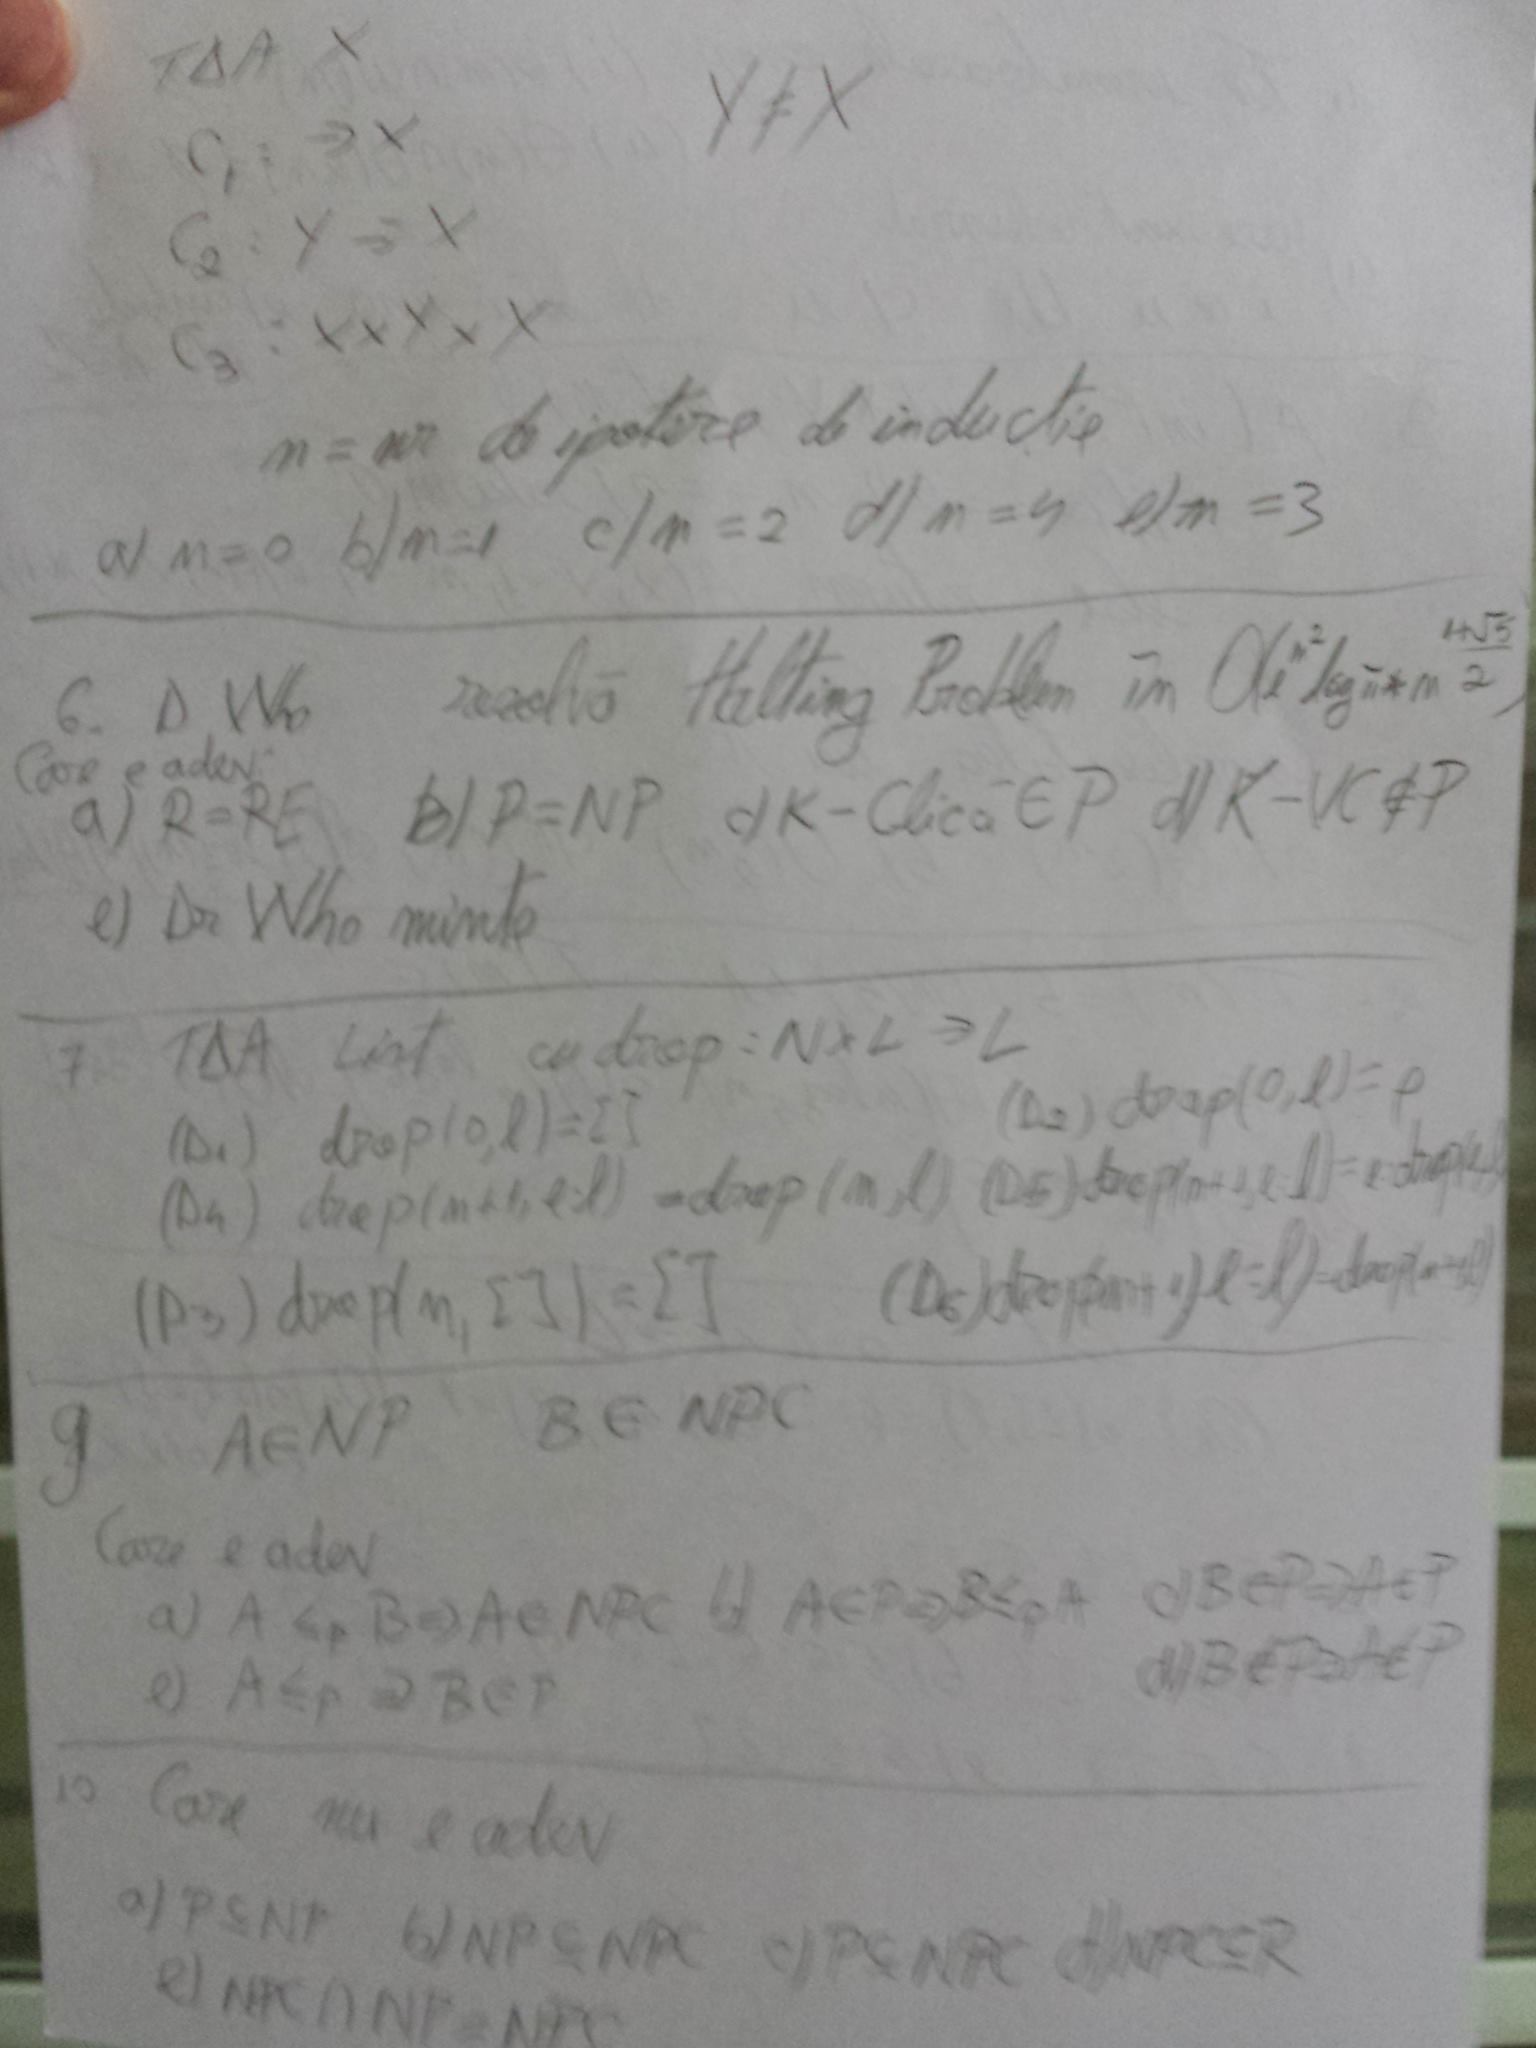 TDA X
Y ≠ X
C1: → X
C2: Y → X
C3: X x Y x X
n = nr de ipoteze de inductie
a) n=0 b) n=1 c) n=2 d) n=4 e) n=3
6. D Who rezolvă Halting Problem în
Care e adev:
a) R=RE b) P=NP c) K-Clică ∈ P d) K-VC ∉ P
e) Dr Who minte
7 TDA List cu drop: N x L → L
(D1) drop(0,l)=[] (D2) drop(0,l)=l
(D4) drop(n+1,e:l) = drop(n,l) (D5) drop(n+1,e:l)=e:drop(n,l)
(D3) drop(n,[])=[] (D6) drop(n+1,e:l)=drop(n+1,l)
9 A∈NP B∈NPC
Care e adev
a) A ≤p B ⇒ A∈NPC b) A∈P ⇒ B ≤p A c) B∈P ⇒ A∈P
d) B∉P ⇒ A∉P
e) A ≤p ⇒ B∈P
10 Care nu e adev
a) P⊆NP b) NP⊆NPC c) P⊆NPC d) NPC⊆R
e) NPC∩NP=NPC